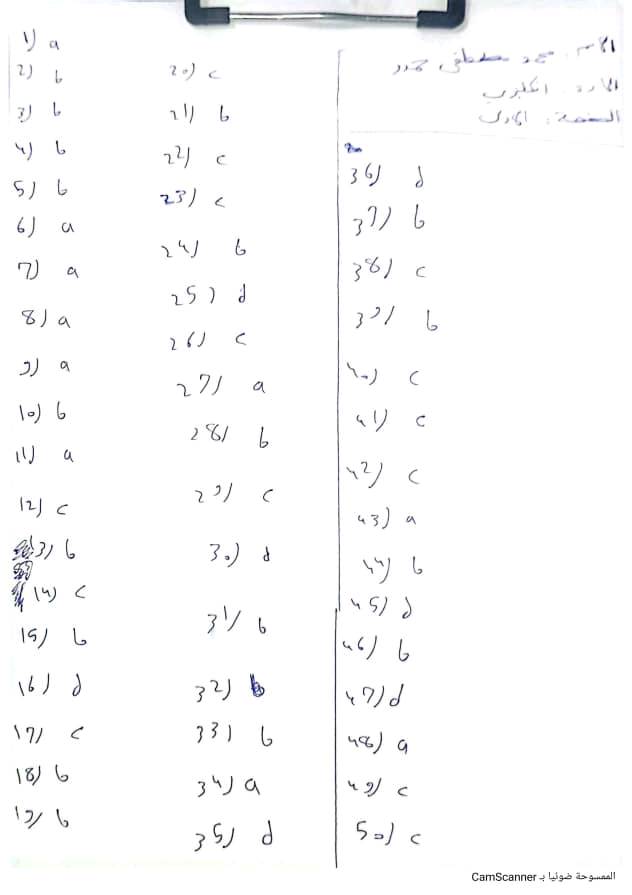 1) a
2) b
3) b
4) b
5) b
6) a
7) a
8) a
9) a
10) b
11) a
12) c
13) b
14) c
15) b
16) d
17) c
18) b
19) b
20) c
21) b
22) c
23) c
24) b
25) d
26) c
27) a
28) b
29) c
30) d
31) b
32) b
33) b
34) a
35) d
الاسم: محمد مصطفى
36) d
37) b
38) c
39) b
40) c
41) c
42) c
43) a
44) b
45) d
46) b
47) d
48) a
49) c
50) c
الممسوحة ضوئيا بـ CamScanner